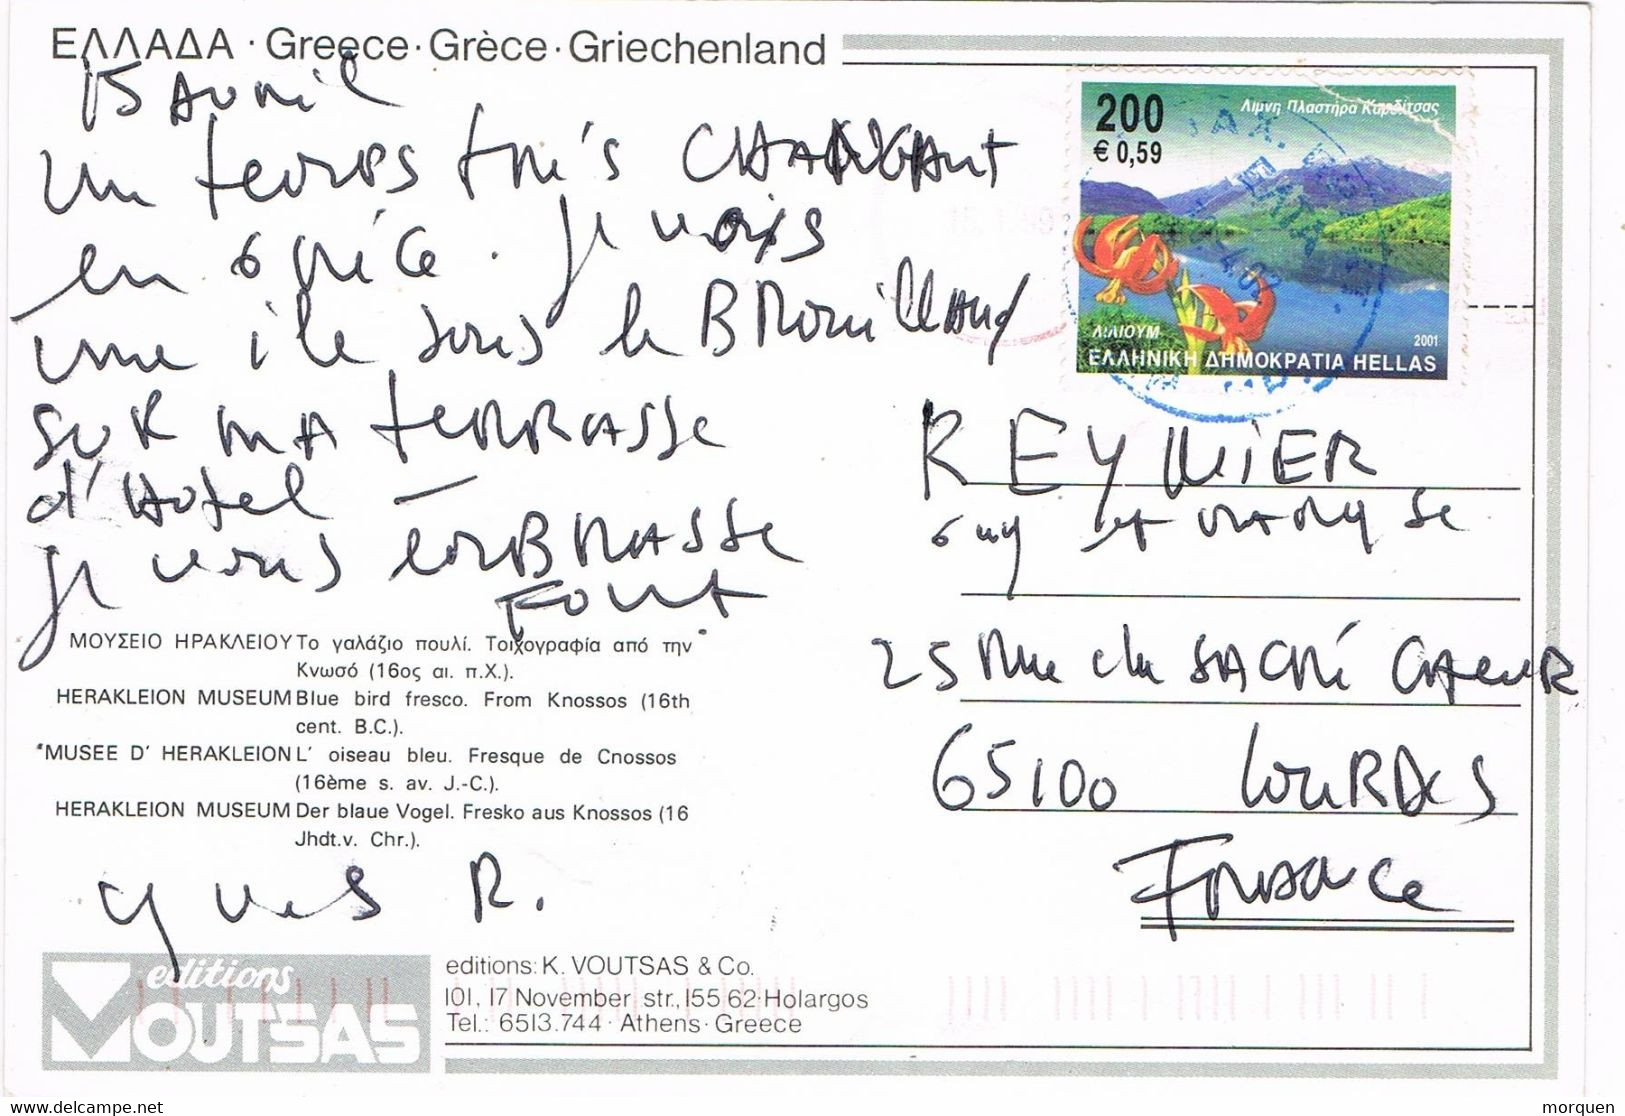 ΕΛΛΑΔΑ · Greece · Grèce · Griechenland
15 Avril
un temps très CHANGEANT
en Grèce. Je vois
une île sous le BROUILLARD
SUR MA TERRASSE
d'Hotel —
je vous EMBRASSE
FORT
ΜΟΥΣΕΙΟ ΗΡΑΚΛΕΙΟΥ Το γαλάζιο πουλί. Τοιχογραφία από την
Κνωσό (16ος αι. π.Χ.).
HERAKLEION MUSEUM Blue bird fresco. From Knossos (16th
cent. B.C.).
MUSEE D' HERAKLEION L' oiseau bleu. Fresque de Cnossos
(16ème s. av. J.-C.).
HERAKLEION MUSEUM Der blaue Vogel. Fresko aus Knossos (16
Jhdt.v. Chr.).
Yves R.
editions
VOUTSAS
editions: K. VOUTSAS & Co.
101, 17 November str., 155 62 · Holargos
Tel.: 6513.744 · Athens · Greece
200
€ 0,59
Λίμνη Πλαστήρα Καρδίτσας
ΛΙΛΙΟΥΜ
2001
ΕΛΛΗΝΙΚΗ ΔΗΜΟΚΡΑΤΙΑ HELLAS
REYNIER
Guy et
25 Rue du SACRÉ CŒUR
65100 LOURDES
FRANCE
morquen